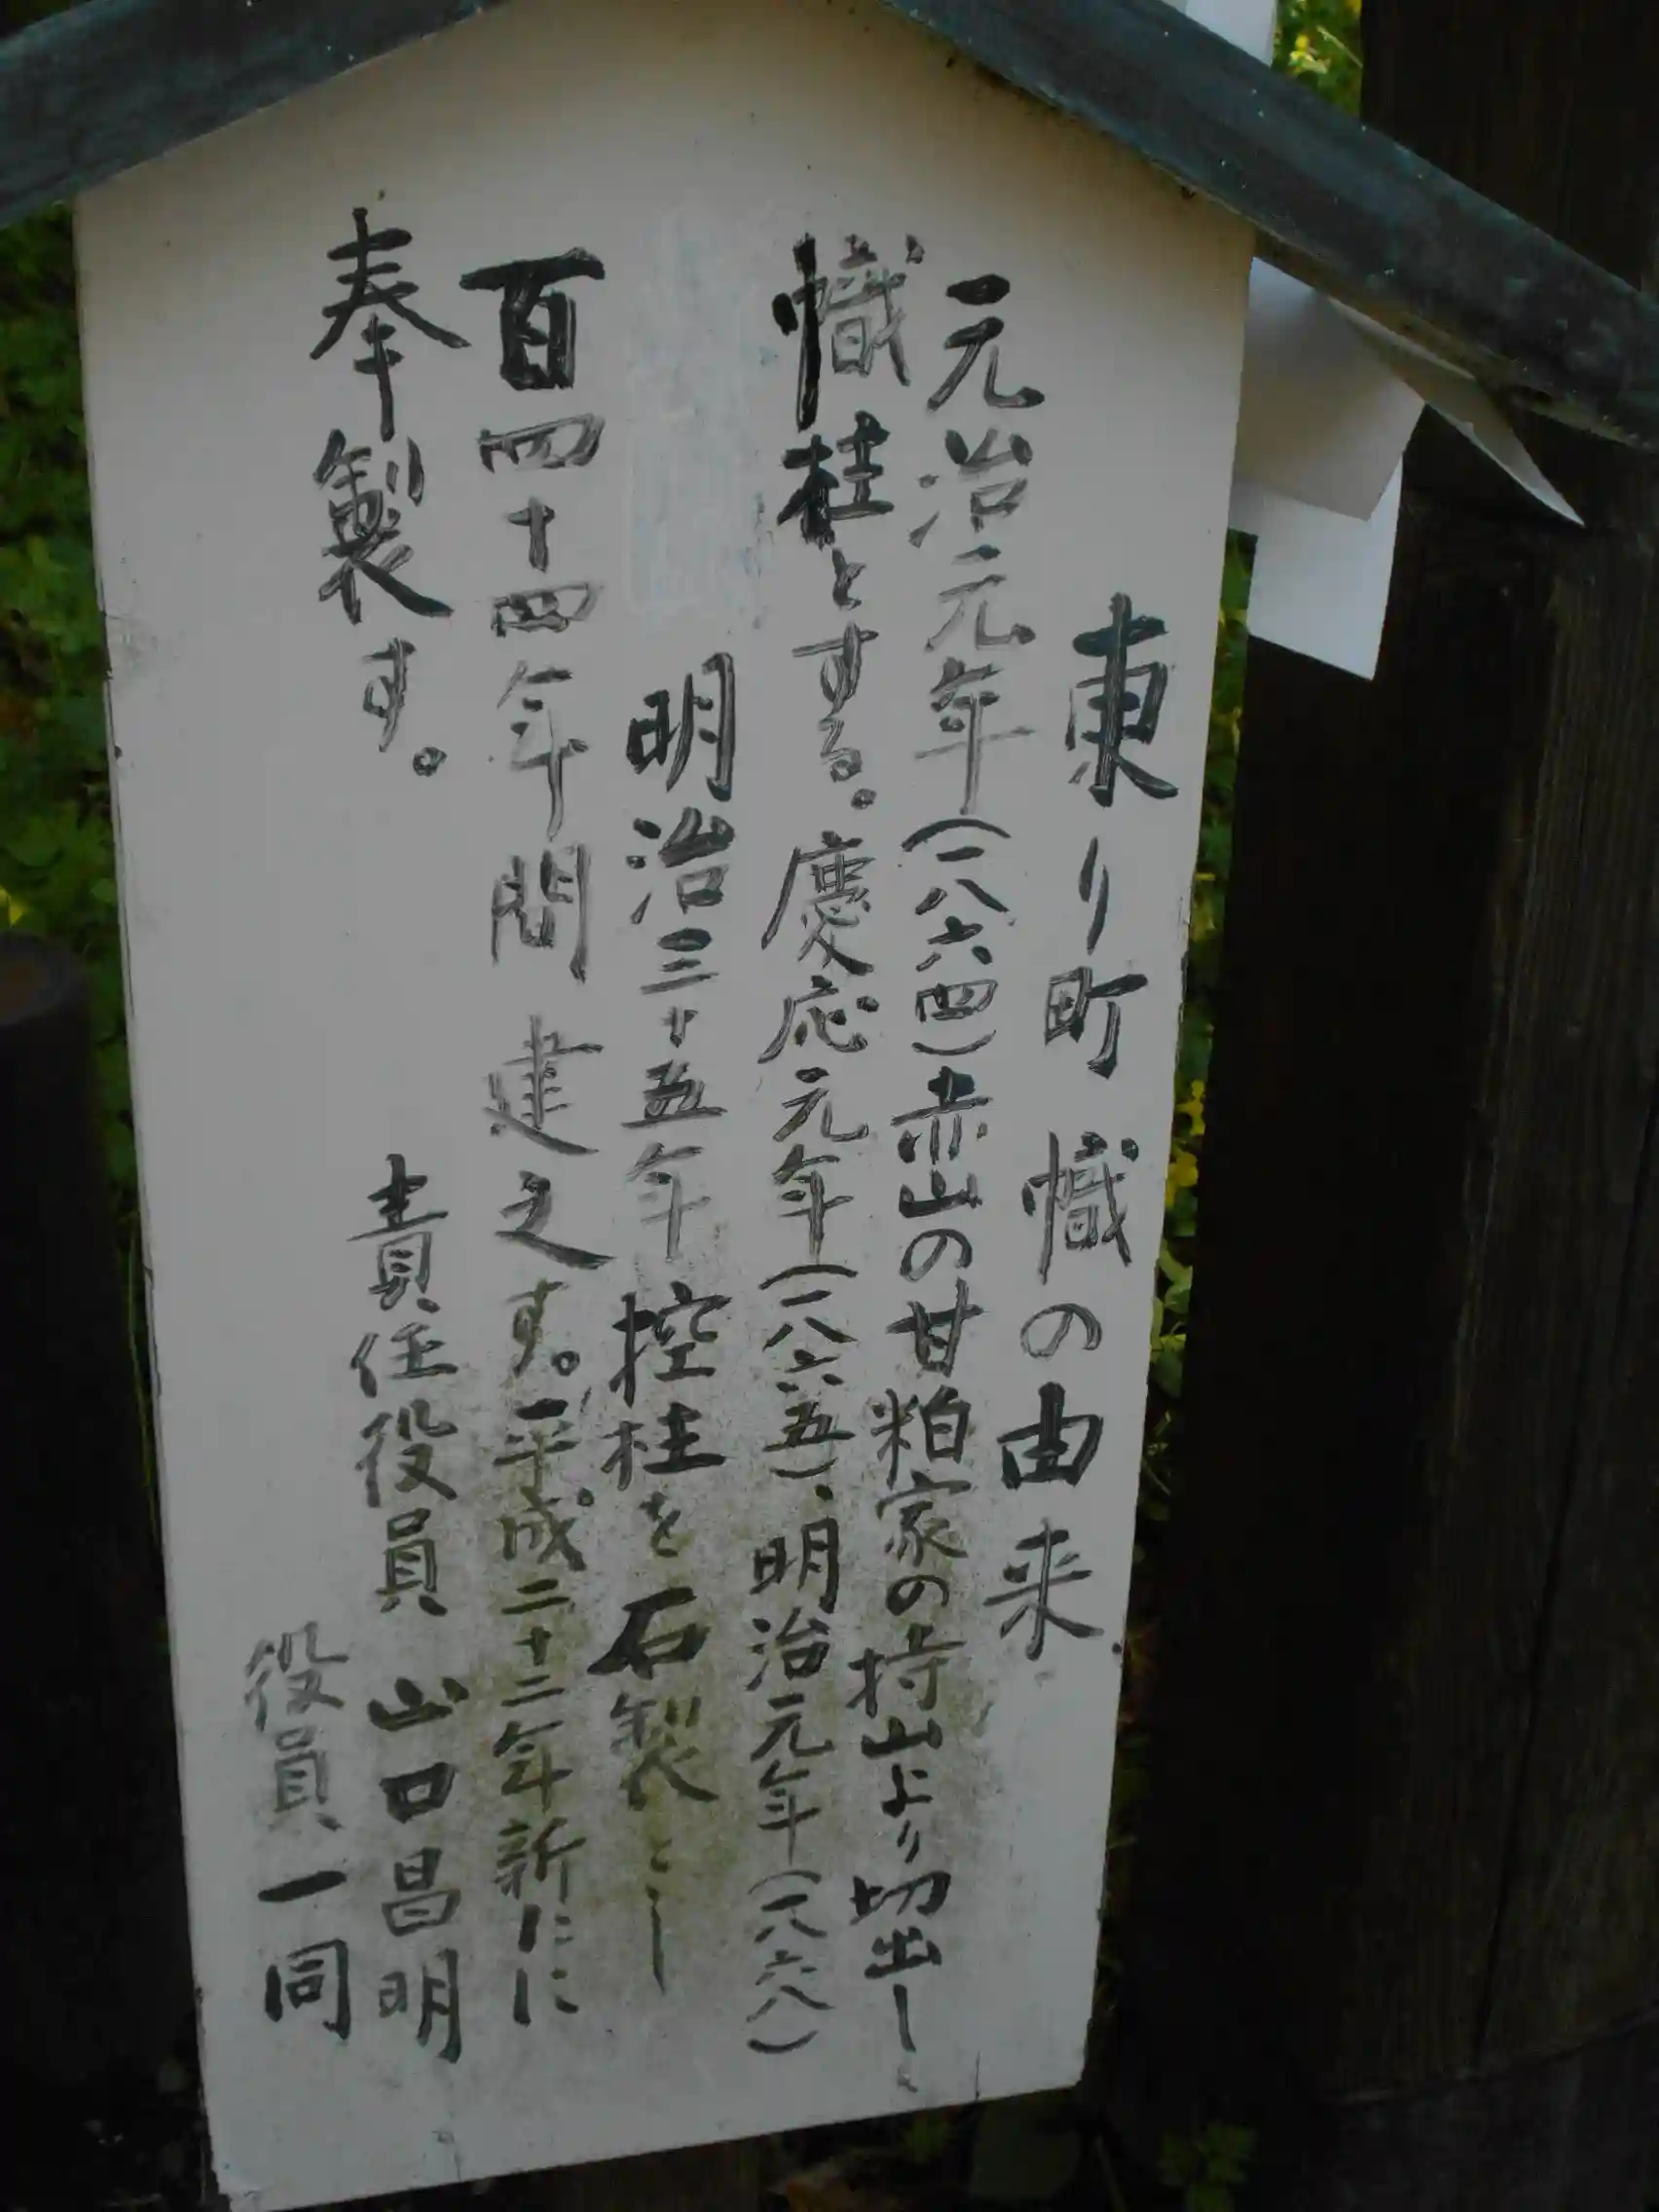 東り町 幟の由来
元治元年(一八六四)赤山の甘粕家の持山より切出し、
幟柱とする。慶応元年(一八六五)、明治元年(一八六八)
明治三十五年控柱を石製とし
百四十四年間建之す。平成二十二年新に
奉製す。
責任役員 山口昌明
役員一同